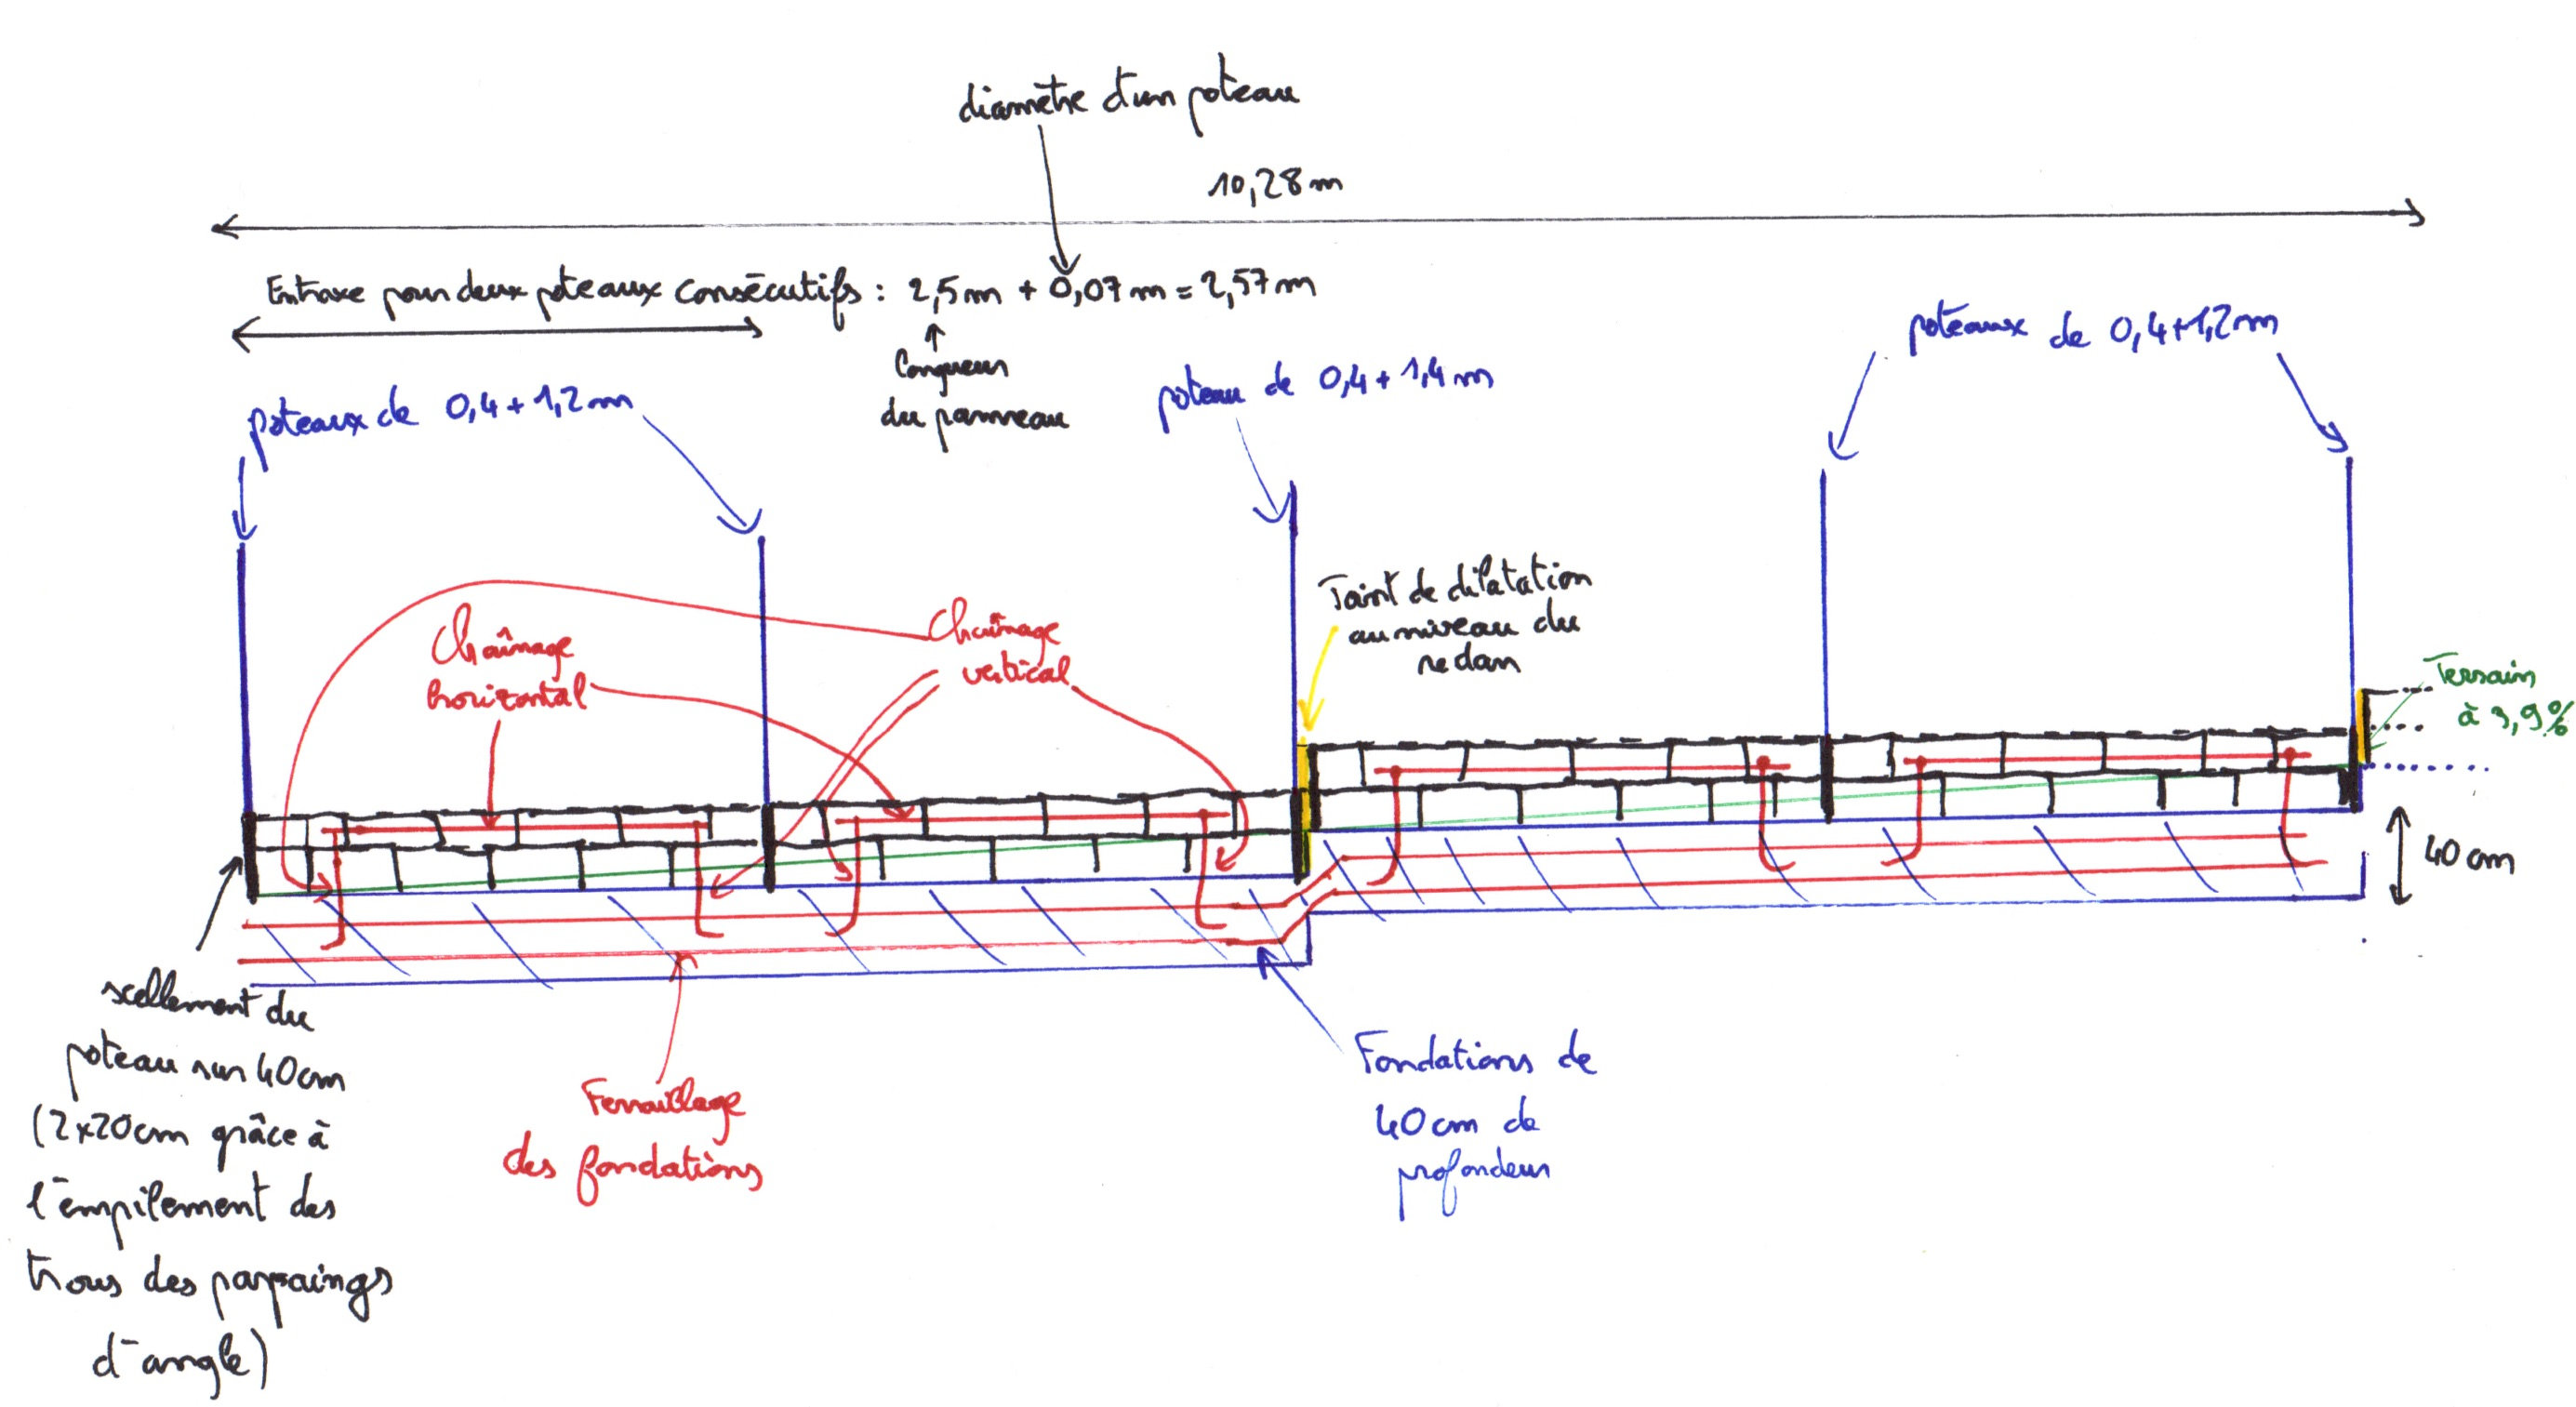 diamètre d'un poteau
10,28m
Entraxe pour deux poteaux consécutifs : 2,5m + 0,07m = 2,57m
longueur
du panneau
poteaux de 0,4+1,2m
poteau de 0,4+1,4m
poteaux de 0,4+1,2m
Chaînage
horizontal
Chaînage
vertical
Joint de dilatation
au niveau du
redan
Terrain
à 3,9%
40cm
scellement du
poteau sur 40cm
(2x20cm grâce à
l'empilement des
trous des parpaings
d'angle)
Ferraillage
des fondations
Fondations de
40cm de
profondeur